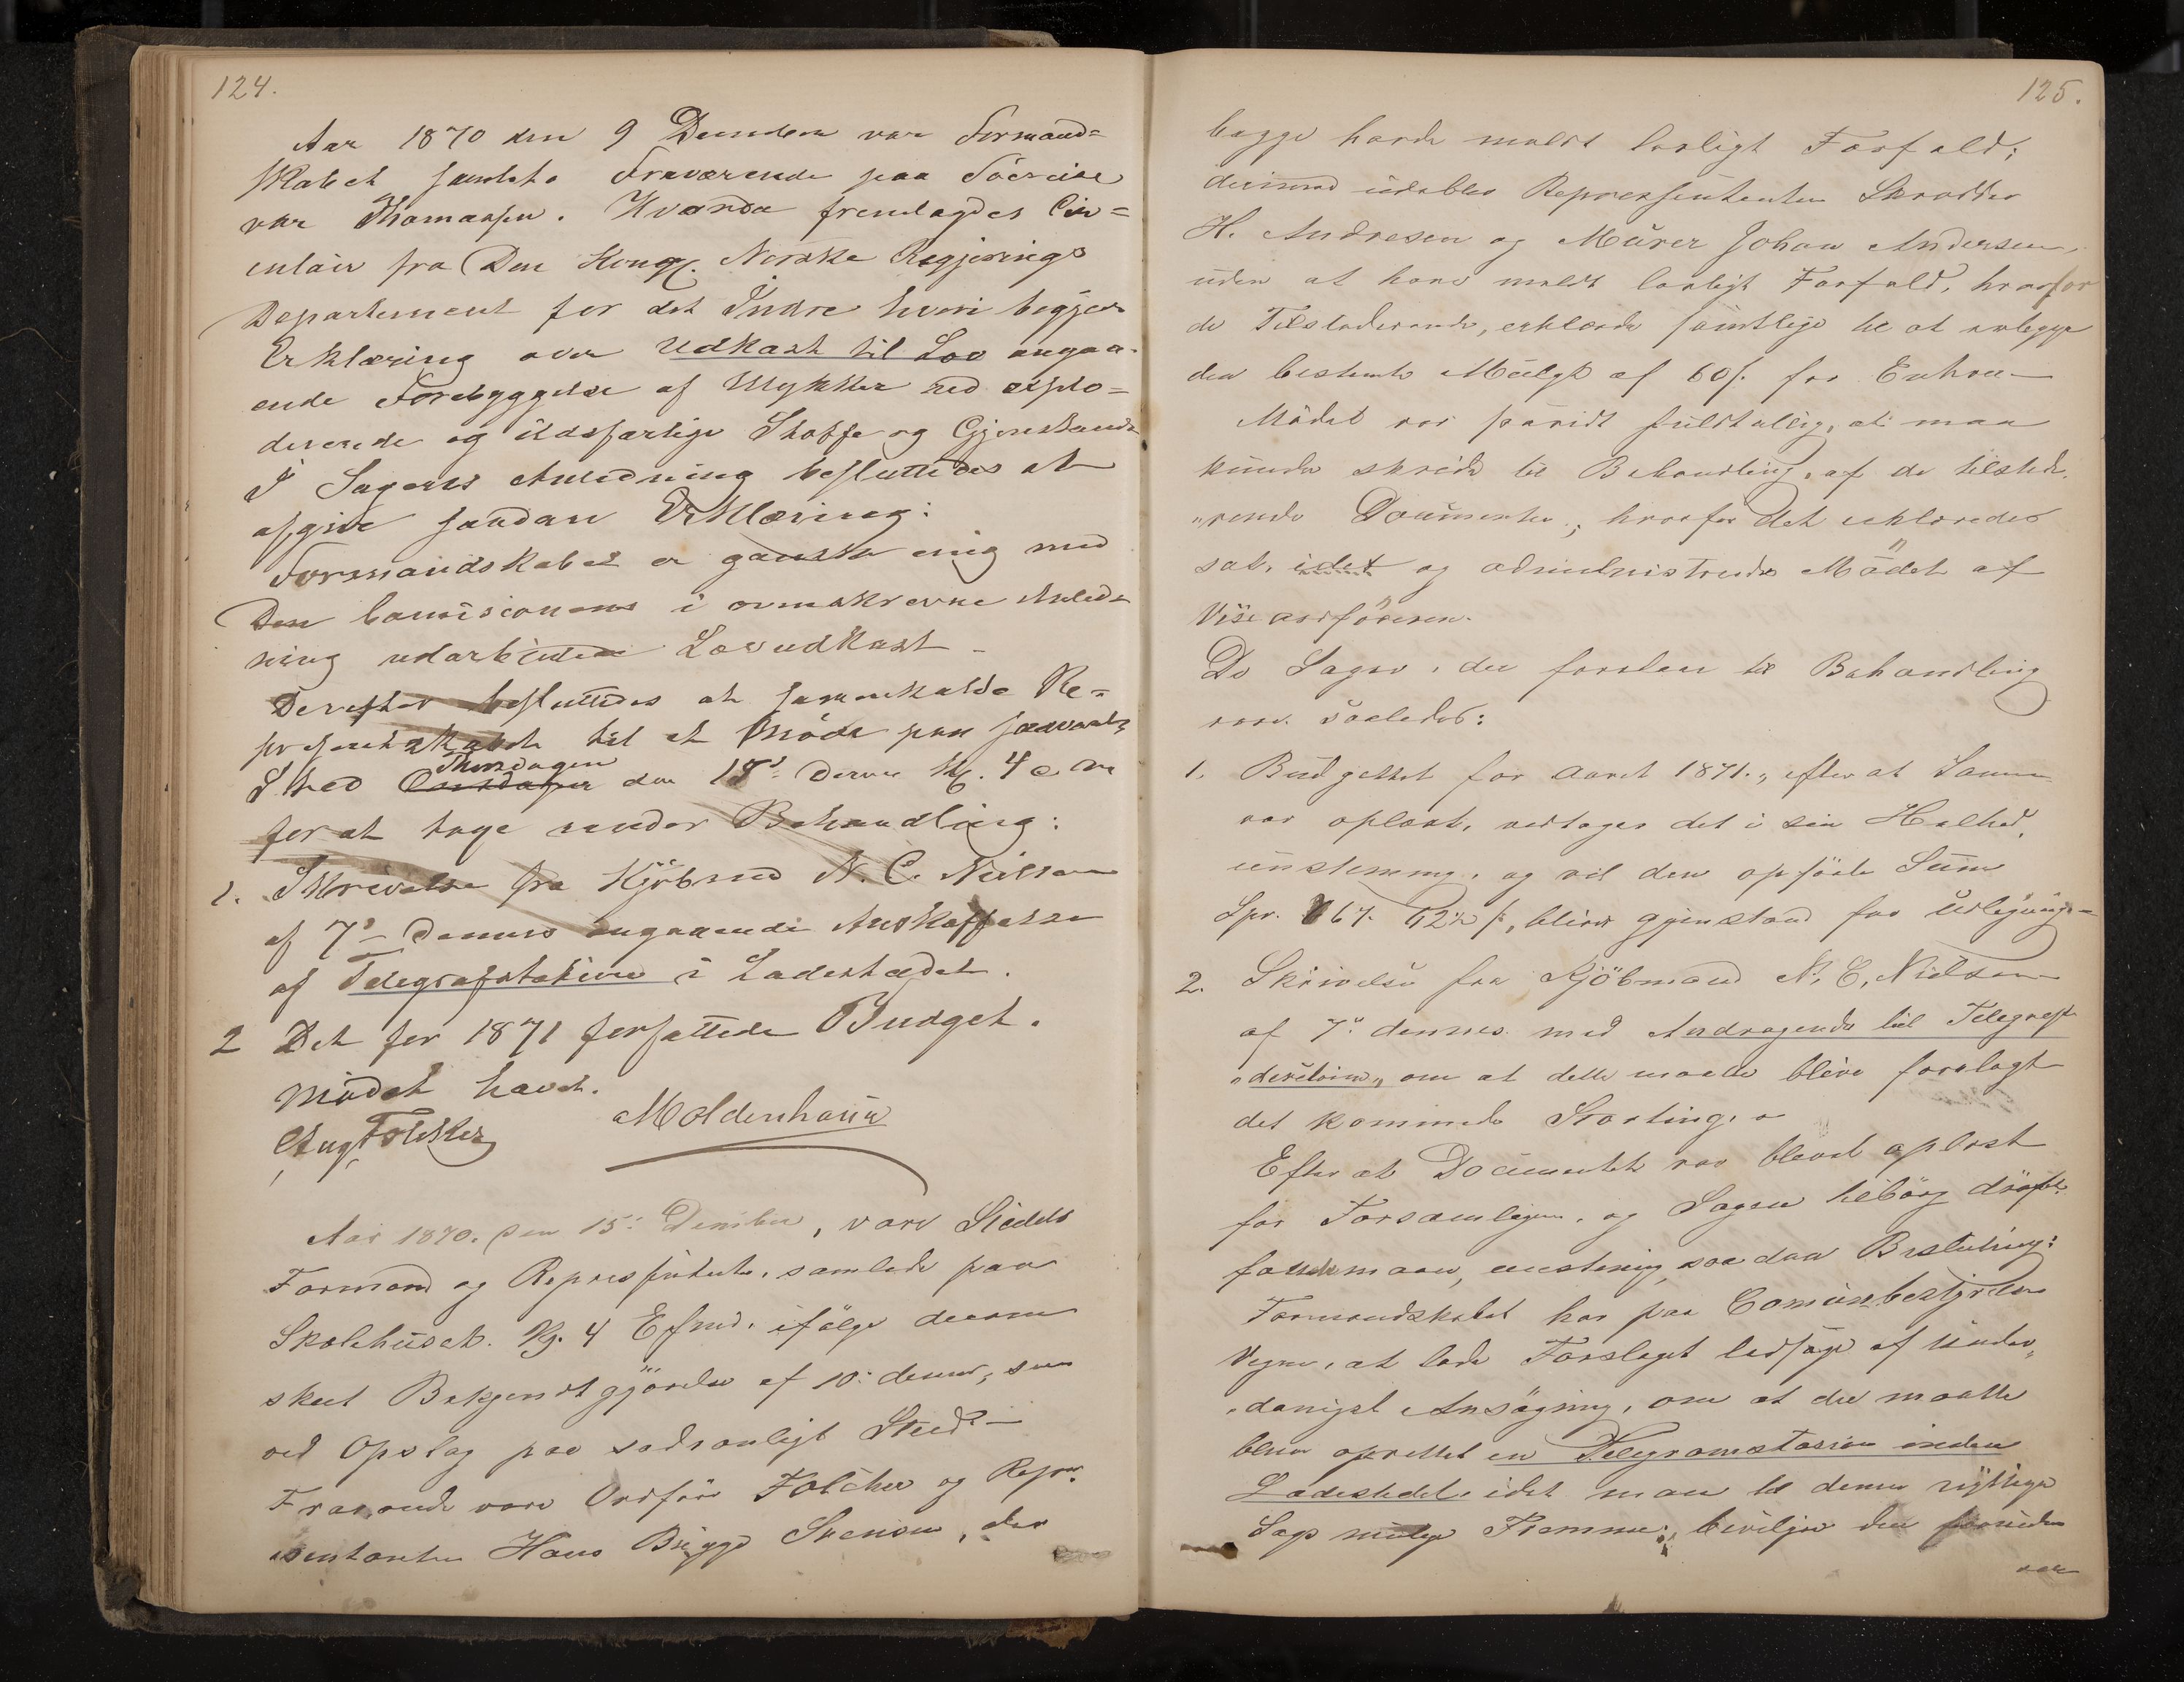 124.
Aar 1870 den 9 Decembr var Formand=
skabet samlet. Fraværende paa Söreise
var Thomasen. Hvorda fremlagdes Cir=
culair fra Den Kongl. Norske Regjerings
Departement for det Indre hvori begjær
Erklæring over Udkast til Lov angaa-
ende Forebyggelse af Ulykker ved explo=
derende og ildsfarlige Stoffe og Gjenstande
I Sagens Anledning besluttedes at
afgive saadan Erklæring:
Formandskabet er ganske enig med
Den Comisionens i ovmskrevne Anled=
ning udarbeidede Lovudkast -
Derefter besluttedes at sammenkalde Re=
presentskabet til et Möde paa sædvanl.
Sted Onsdagen Thorsdagen den 15d: Denne Kl. 4 e m
for at tage under Behandling:
1. Skrivelse fra Kjöbmd N. C. Nielsen
af 7d- Dennes angaaende Anskaffelse
af Telegrafstation i Ladestedet.
2 Det for 1871 forfattede Budget.
Mödet hævet.
Aug Fölcker Moldenhauer
Aar 1870. den 15: Decmber, vare Stedets
Formænd og Repræsentanter samlede paa
Skolehuset. Kl. 4 Efmd. ifölge derom
skeet Bekjendtgjörelse af 10: denne, som
ved Opslag paa sædvanligt Sted -
Fraværende vare Ordför Fölcker og Repr.
esentanten Hans Brygge Svensen, der
125.
begge havde meldt lovligt Forfald;
derimod udeblev Repræsentanten Skrædder
H. Andresen og Murer Johan Andersen,
uden at have meldt lovligt Forfald, hvorfor
de Tilstedeværende, erklærede samtlige til at erlægge
den bestemte Mulgt af 60 s. for Enhver -
Mödet var forövrigt fuldtallig, at man
kunde skride til Behandling, af de tilstede
værende Documenter, hvorfor det erklæredes
sat, idet og administreredes Mödet af
Viseordföreren.
De Sager, der foretoges til Behandling
vare saaledes:
1. Budgettet for Aaret 1871., efter at Samme
var oplæst, vedtoges det i sin Helhed,
enstemmig, og vil den opförte Sum
Spr. 667. 42½ s, blive gjenstand for Udligning -
2. Skrivelse fra Kjöbmand N. C. Nielsen
af 7: dennes. med Andragende til Telegraf
"derektoren", om at dette maatte blive forelagt
det kommende Storting. -
Efter at Documentet var blevet oplæst
for Forsamlingen, og Sagen tilbörg dröftet
fattede man, enstemig, saadan Beslutning:
Formandskabet har paa Comunbestyrelsens
Vegne, at lade Forslaget ledsage af under-
danigst Ansögning, om at der maatte
blive oprettet en Telegramstasion inden
Ladestedet, idet man til denne vigtige
Sags mulige Fremme, bevilger den fornödne